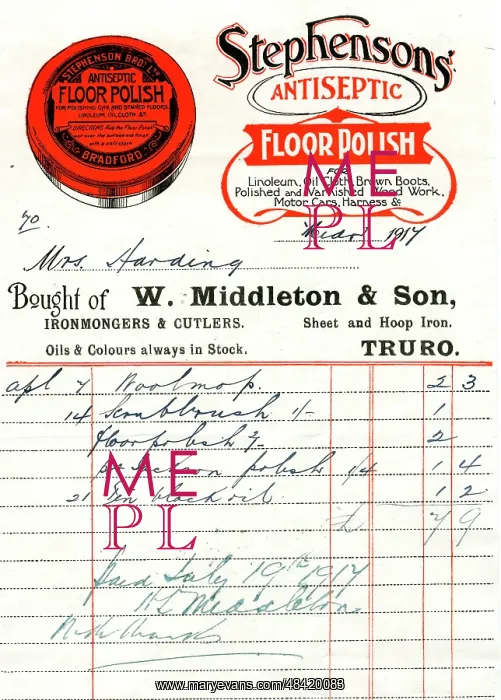 STEPHENSON BROS. LTD
ANTISEPTIC
FLOOR POLISH
FOR POLISHING OAK AND STAINED FLOORS
LINOLEUM OILCLOTH &c
DIRECTIONS Rub the Floor Polish
well over the surface and finish
with a soft cloth
BRADFORD.
Stephensons'
ANTISEPTIC
FLOOR POLISH
FOR
Linoleum, Oil Cloth, Brown Boots,
Polished and Varnished Wood Work,
Motor Cars, Harness &c
ME
PL
1917
Mrs. Harding
Bought of W. Middleton & Son,
IRONMONGERS & CUTLERS. Sheet and Hoop Iron.
Oils & Colours always in Stock. TRURO.
apl 7 Woolmop. 2 3
14 Scrubbrush 1/- 1
floorpolish 2/- 2
polish 1/4 1 4
21 1 2
£ 7 9
ME
PL
Paid July 19th 1917
Middleton
With thanks
www.maryevans.com/48420083